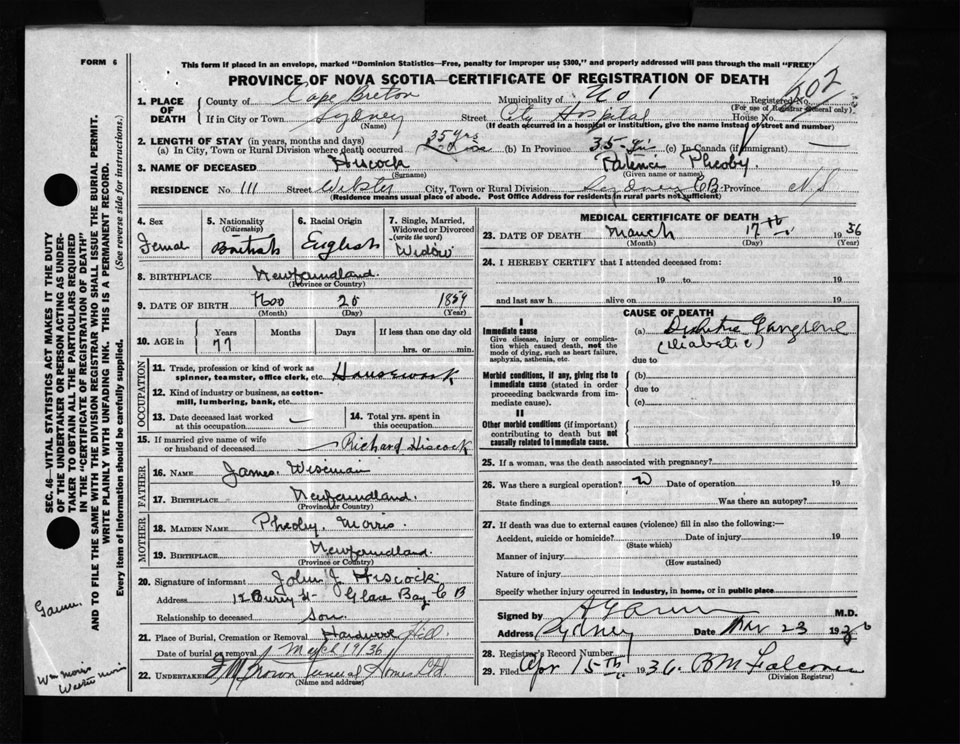 FORM 6
This form if placed in an envelope, marked "Dominion Statistics—Free, penalty for improper use $300," and properly addressed will pass through the mail "FREE"
PROVINCE OF NOVA SCOTIA—CERTIFICATE OF REGISTRATION OF DEATH
1. PLACE OF DEATH
County of Cape Breton Municipality of No 1 Registered No. 502
(For use of Registrar General only)
If in City or Town Sydney Street City Hospital House No.
(Name) (If death occurred in a hospital or institution, give the name instead of street and number)
2. LENGTH OF STAY (in years, months and days)
(a) In City, Town or Rural Division where death occurred 35 yrs (b) In Province 35 yrs (c) In Canada (if immigrant) —
3. NAME OF DECEASED Hiscock Pheoby
(Surname) (Given name or names)
RESIDENCE No. 111 Street Webster City, Town or Rural Division Sydney C B Province N. S
(Residence means usual place of abode. Post Office Address for residents in rural parts not sufficient)
4. Sex
Femal
5. Nationality
(Citizenship)
British
6. Racial Origin
English
7. Single, Married, Widowed or Divorced
(write the word)
Widow
8. BIRTHPLACE Newfoundland.
(Province or Country)
9. DATE OF BIRTH 20 1859
(Month) (Day) (Year)
10. AGE in Years Months Days If less than one day old
77 hrs. or min.
OCCUPATION
11. Trade, profession or kind of work as spinner, teamster, office clerk, etc. Housework
12. Kind of industry or business, as cotton-mill, lumbering, bank, etc.
13. Date deceased last worked at this occupation —
14. Total yrs. spent in this occupation
15. If married give name of wife or husband of deceased — Richard Hiscock
FATHER
16. NAME James Wiseman
17. BIRTHPLACE Newfoundland.
(Province or Country)
MOTHER
18. MAIDEN NAME Pheoby. Morris.
19. BIRTHPLACE Newfoundland.
(Province or Country)
20. Signature of informant John J Hiscock
Address 12 St Glace Bay C B
Relationship to deceased Son.
21. Place of Burial, Cremation or Removal Hardwood Hill.
Date of burial or removal March 19/36
22. UNDERTAKER Brown Funeral Homes Ltd.
(Name and address)
MEDICAL CERTIFICATE OF DEATH
23. DATE OF DEATH March 17th 1936
(Month) (Day) (Year)
24. I HEREBY CERTIFY that I attended deceased from:
19 to 19
and last saw h alive on 19
CAUSE OF DEATH
I
Immediate cause
Give disease, injury or complication which caused death, not the mode of dying, such as heart failure, asphyxia, asthenia, etc.
(a) Gangrene
(Diabetic)
due to
Morbid conditions, if any, giving rise to immediate cause (stated in order proceeding backwards from immediate cause).
(b)
due to
(c)
II
Other morbid conditions (if important) contributing to death but not causally related to immediate cause.
25. If a woman, was the death associated with pregnancy?
26. Was there a surgical operation? Date of operation 19
State findings Was there an autopsy?
27. If death was due to external causes (violence) fill in also the following:—
Accident, suicide or homicide? Date of injury 19
(State which)
Manner of injury
(How sustained)
Nature of injury
Specify whether injury occurred in industry, in home, or in public place
Signed by M.D.
Address Sydney Date Mar 23 1936
28. Registrar's Record Number
29. Filed Apr 15th 1936.
(Division Registrar)
SEC. 46—VITAL STATISTICS ACT MAKES IT THE DUTY
OF THE UNDERTAKER OR PERSON ACTING AS UNDER-
TAKER TO OBTAIN ALL THE PARTICULARS REQUIRED
IN THE "CERTIFICATE OF REGISTRATION OF DEATH"
AND TO FILE THE SAME WITH THE DIVISION REGISTRAR WHO SHALL ISSUE THE BURIAL PERMIT.
WRITE PLAINLY WITH UNFADING INK. THIS IS A PERMANENT RECORD.
Every item of information should be carefully supplied. (See reverse side for instructions.)